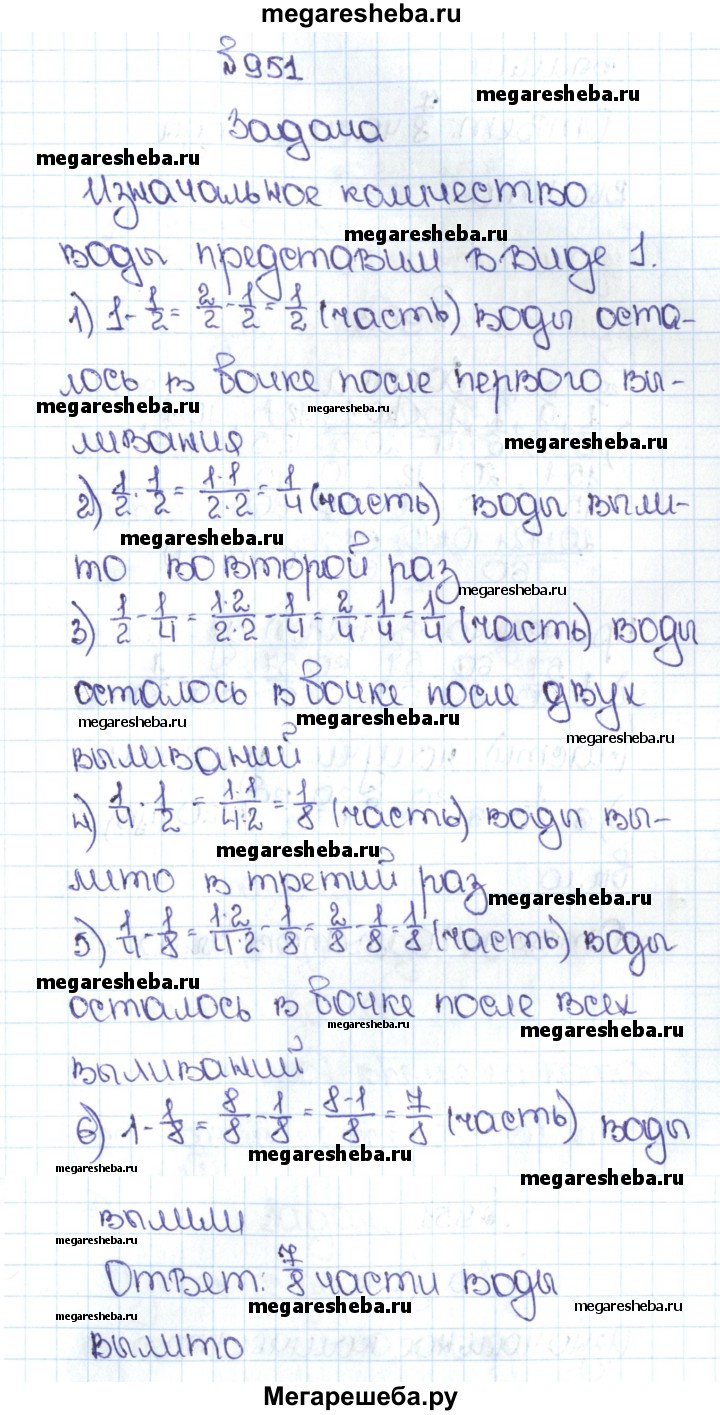 megaresheba.ru
№951
megaresheba.ru
Задача
megaresheba.ru
Изначальное количество
megaresheba.ru
воды представим в виде 1.
1) 1 - 1/2 = 2/2 - 1/2 = 1/2 (часть) воды оста-
лось в бочке после первого вы-
megaresheba.ru megaresheba.ru
ливания megaresheba.ru
2) 1/2 · 1/2 = 1·1/2·2 = 1/4 (часть) воды выли-
megaresheba.ru
то во второй раз
megaresheba.ru
3) 1/2 - 1/4 = 1·2/2·2 - 1/4 = 2/4 - 1/4 = 1/4 (часть) воды
осталось в бочке после двух
megaresheba.ru megaresheba.ru megaresheba.ru
выливаний
4) 1/4 · 1/2 = 1·1/4·2 = 1/8 (часть) воды вы-
megaresheba.ru
лито в третий раз
megaresheba.ru
5) 1/4 - 1/8 = 1·2/4·2 - 1/8 = 2/8 - 1/8 = 1/8 (часть) воды
megaresheba.ru
осталось в бочке после всех
megaresheba.ru megaresheba.ru
выливаний
6) 1 - 1/8 = 8/8 - 1/8 = 8-1/8 = 7/8 (часть) воды
megaresheba.ru megaresheba.ru megaresheba.ru
вылили
megaresheba.ru
Ответ: 7/8 части воды
megaresheba.ru megaresheba.ru megaresheba.ru
вылито
Мегарешеба.ру